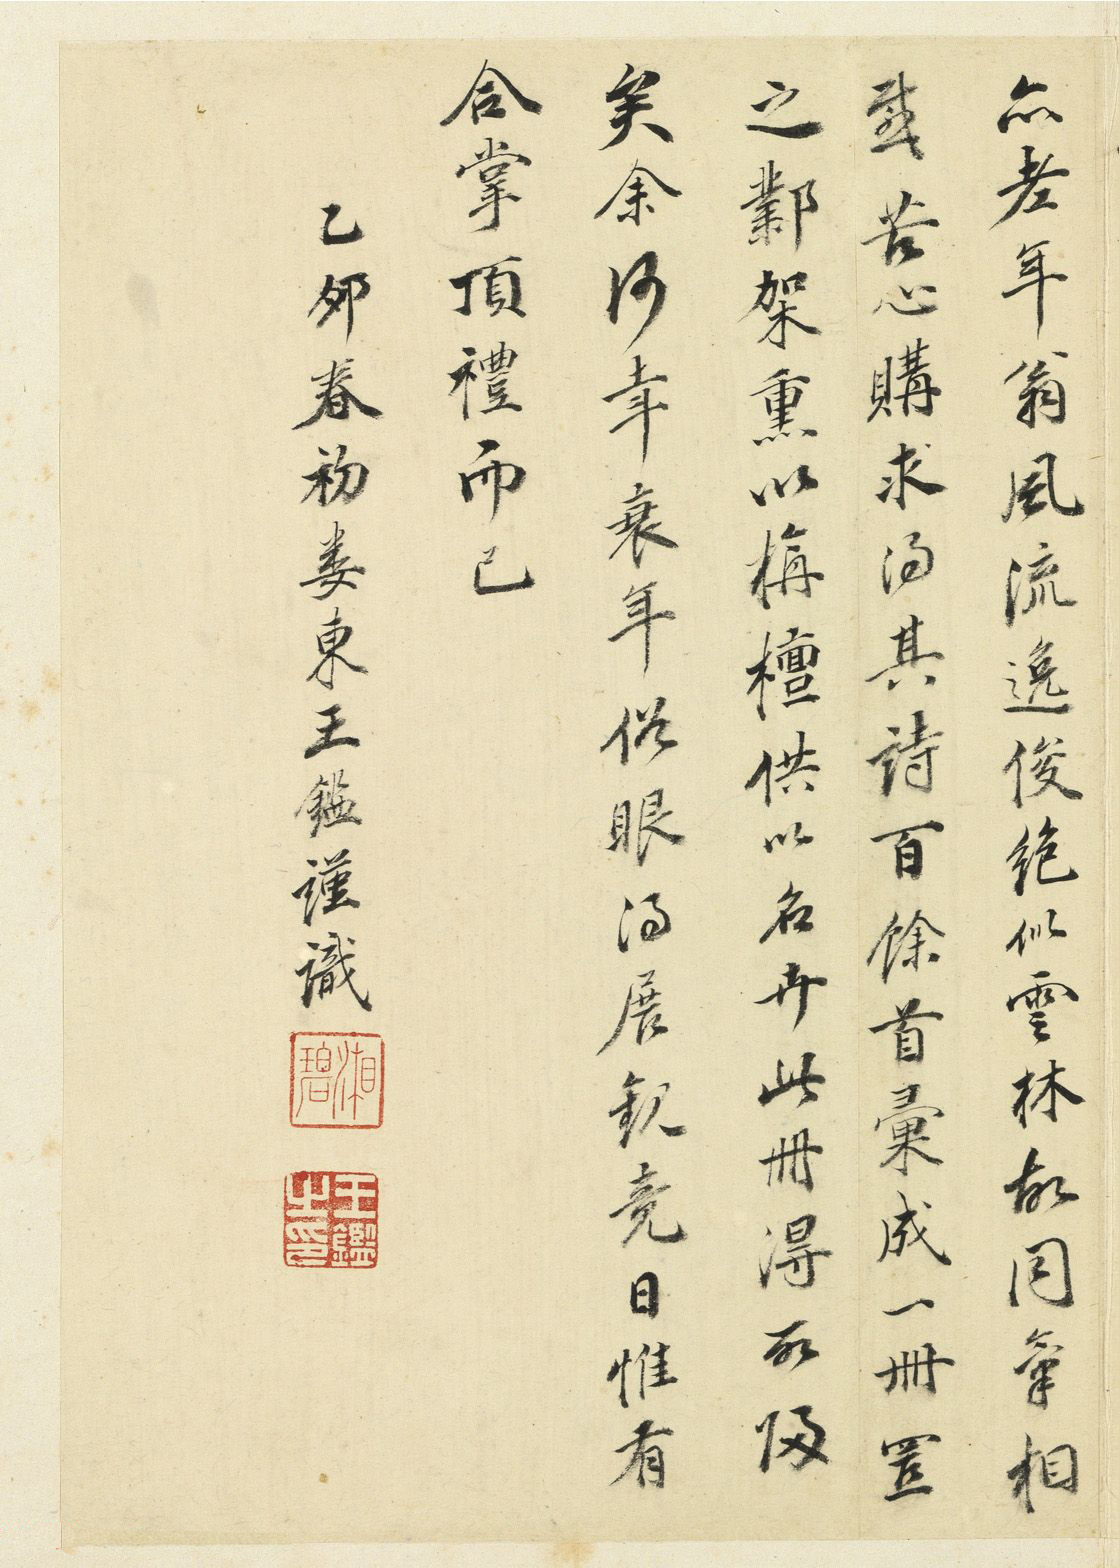 亦老年翁風流逸俊絕似雲林故同氣相
感苦心購求得其詩百餘首彙成一冊置
之鄴架熏以栴檀供以名卉此冊得所歸
矣余何幸衰年俗眼得展觀竟日惟有
合掌頂禮而已
乙卯春初婁東王鑑謹識
湘碧
王鑑之印